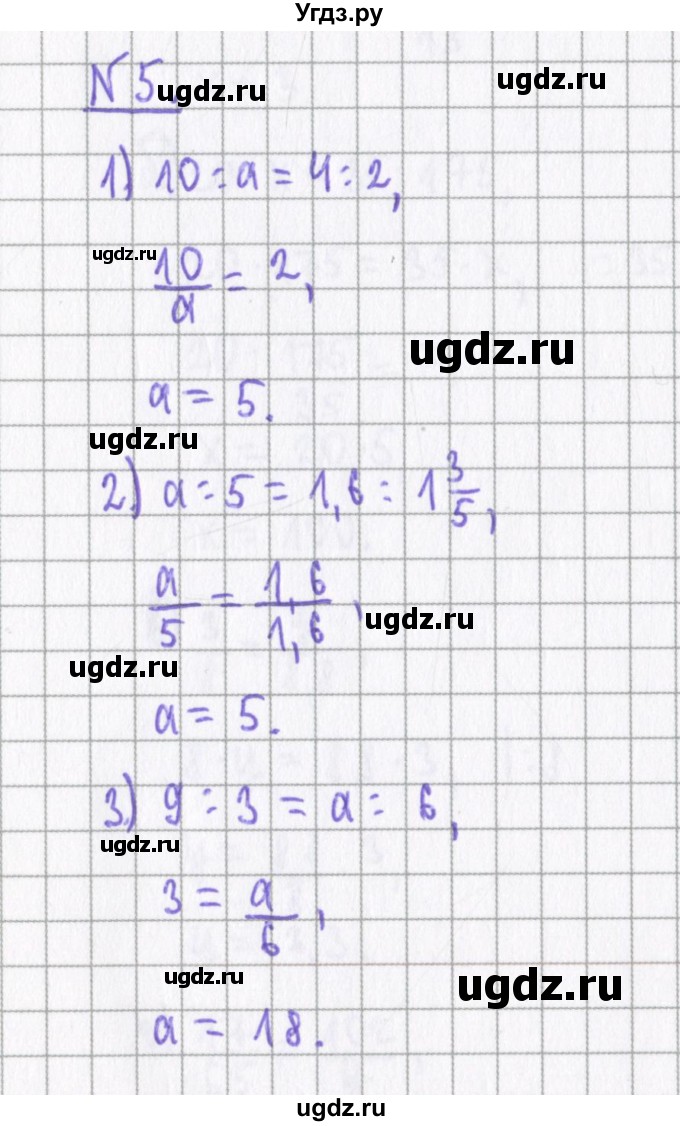 Угдз.ру
N 5. ugdz.ru ugdz.ru
1) 10 : a = 4 : 2,
ugdz.ru
10/a = 2,
ugdz.ru
a = 5.
ugdz.ru
2) a : 5 = 1,6 : 1 3/5,
a/5 = 1,6/1,6,
ugdz.ru
ugdz.ru
a = 5.
3) 9 : 3 = a : 6,
ugdz.ru
3 = a/6,
ugdz.ru
ugdz.ru
a = 18.
ugdz.ru